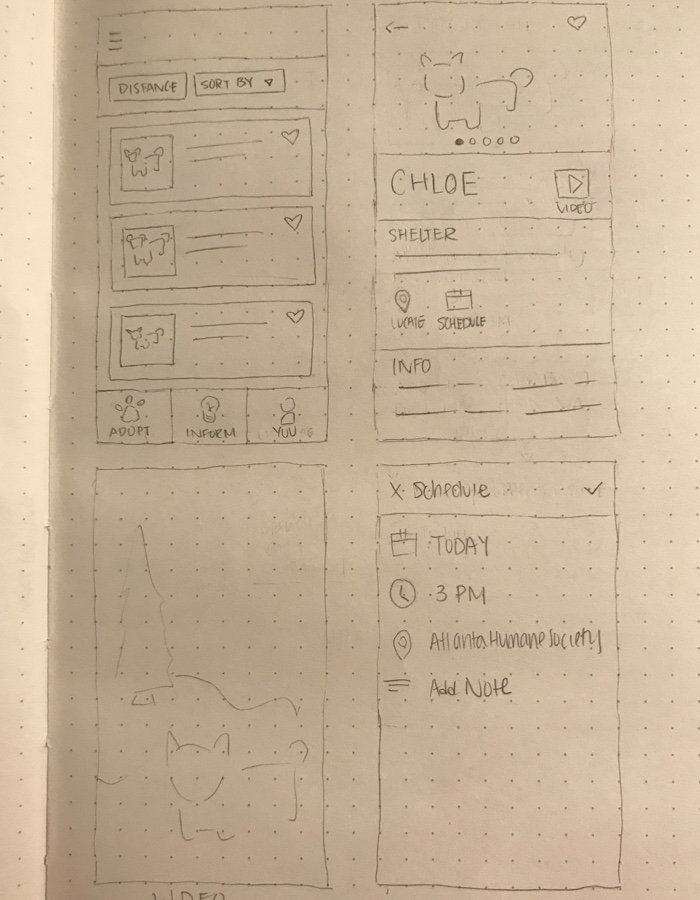 DISTANCE
SORT BY
ADOPT
INFORM
YOU
CHLOE
VIDEO
SHELTER
LOCATE
SCHEDULE
INFO
X Schedule
TODAY
3 PM
Atlanta Humane Society
Add Note
VIDEO